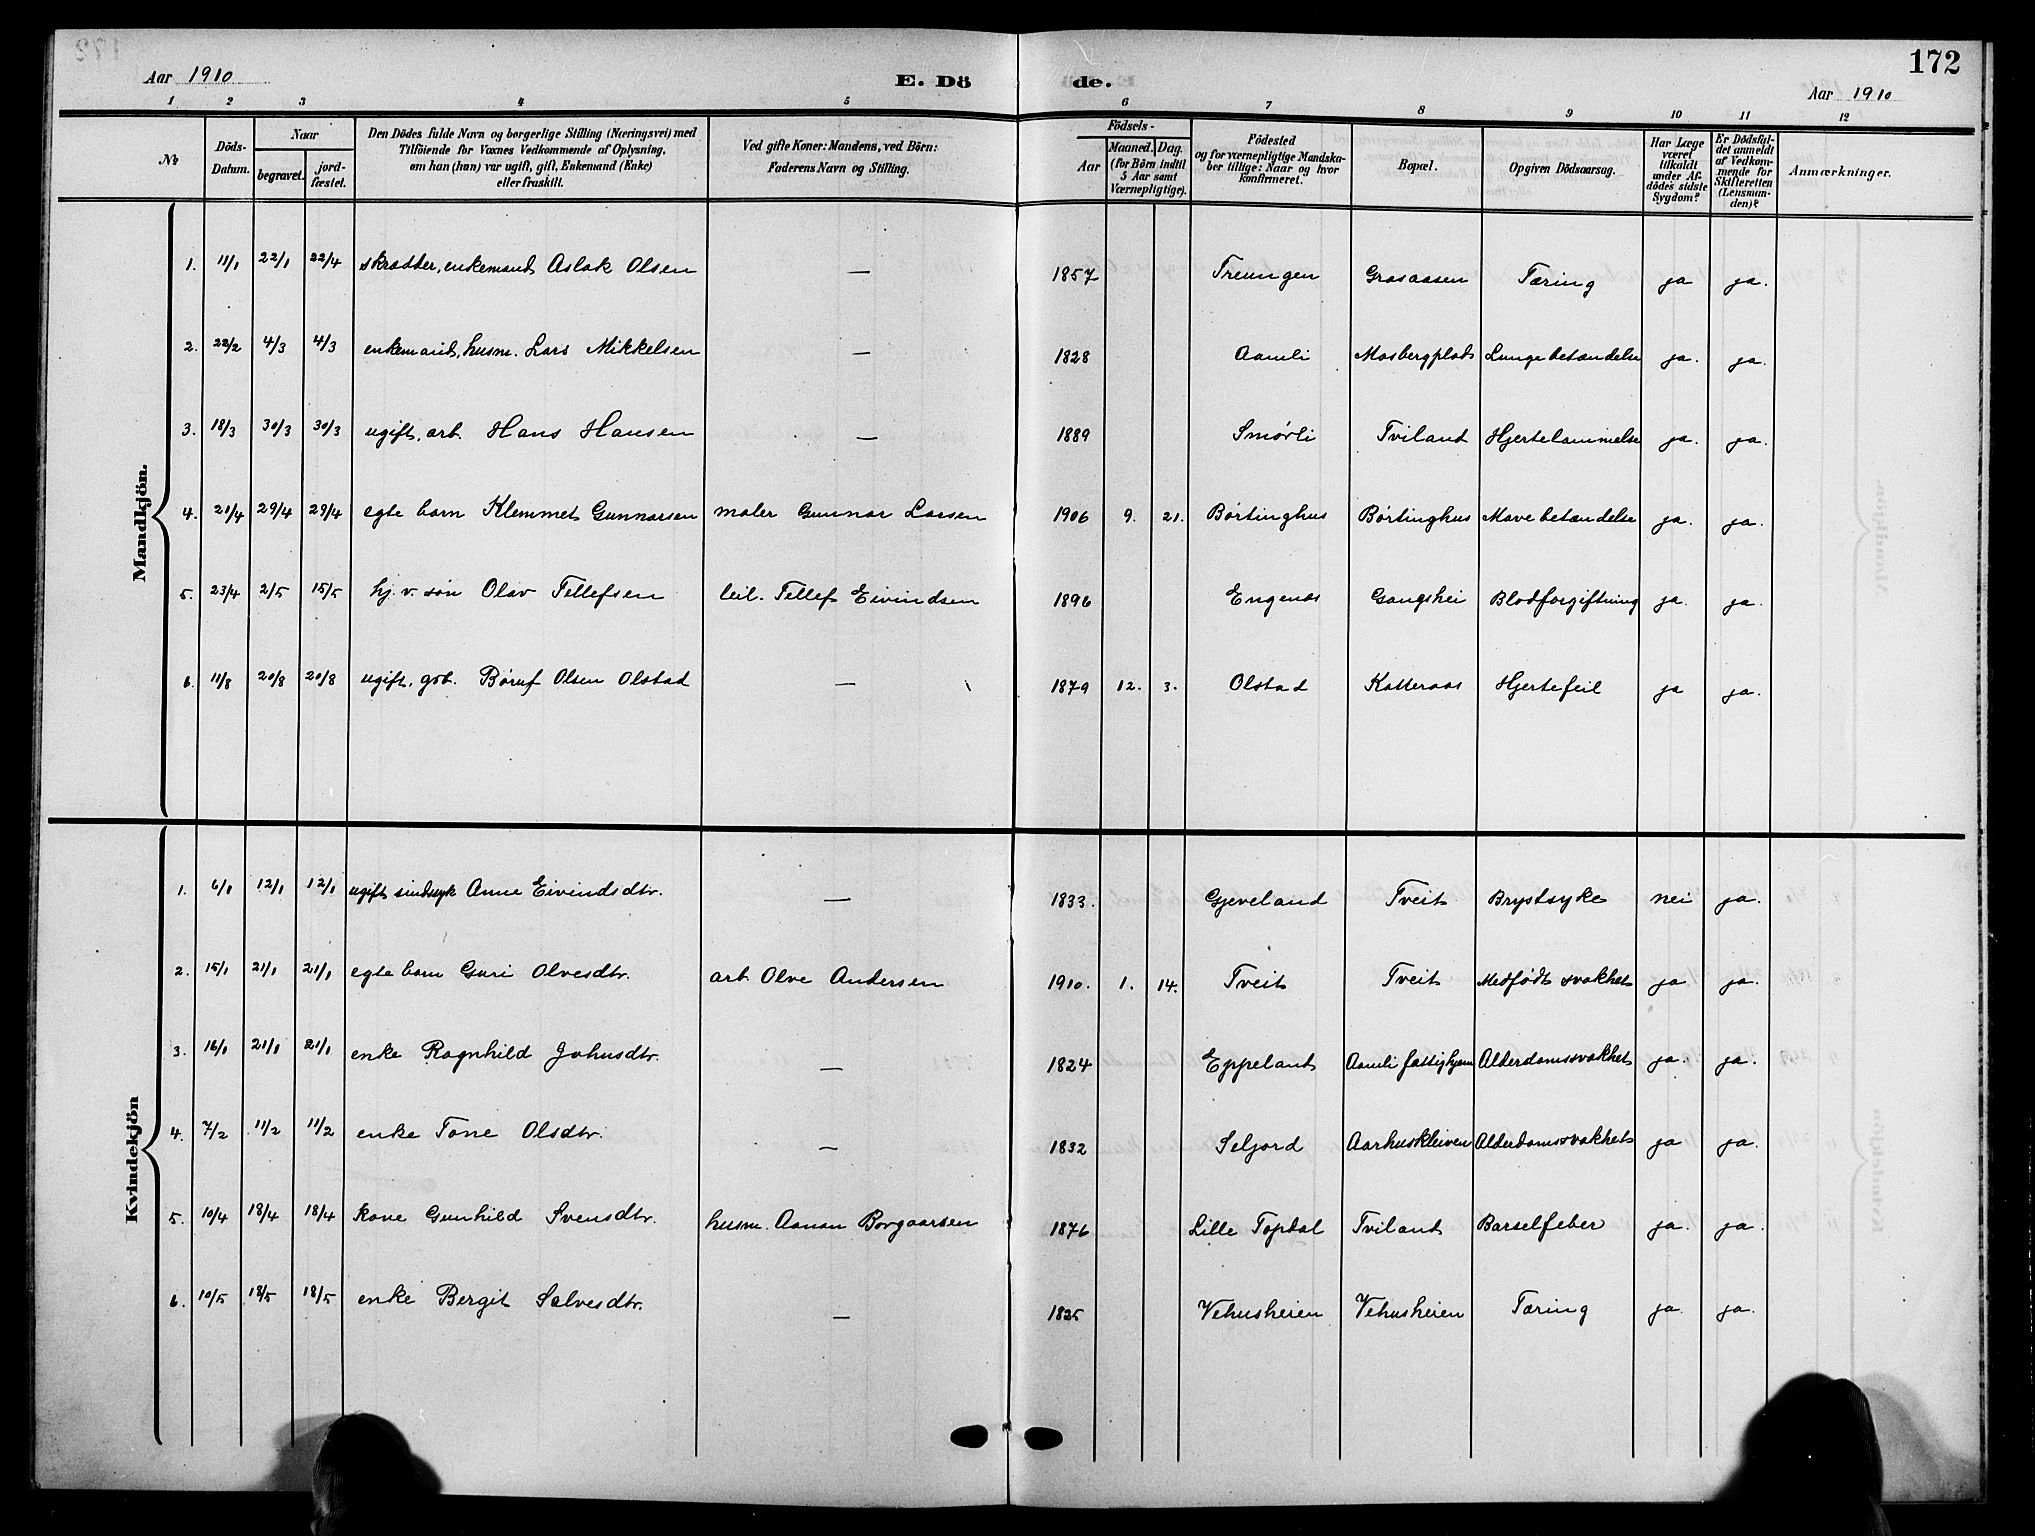 172
Aar 1910
E. Dö de.
Aar 1910
1 2 3 4 5 6 7 8 9 10 11 12
No
Döds-Datum.
Naar
begravet.
jord-fæstet.
Den Dödes fulde Navn og borgerlige Stilling (Næringsvei) med
Tilföiende for Voxnes Vedkommende af Oplysning,
om han (hun) var ugift, gift, Enkemand (Enke)
eller fraskilt.
Ved gifte Koner: Mandens, ved Börn:
Faderens Navn og Stilling.
Födsels-
Aar
Maaned. Dag.
(for Börn indtil
5 Aar samt
Værnepligtige).
Födested
og for værnepligtige Mandska-
ber tillige: Naar og hvor
konfirmeret.
Bopæl.
Opgiven Dödsaarsag.
Har Læge
været
tilkaldt
under Af-
dödes sidste
Sygdom?
Er Dödsfal-
det anmeldt
af Vedkom-
mende for
Skifteretten
(Lensman-
den)?
Anmærkninger.
Mandkjön.
1. 11/1 22/1 22/4 skrædder, enkemand Aslak Olsen — 1857 Treungen Grasaasen Tæring ja ja.
2. 22/2 4/3 4/3 enkemand, husm. Lars Mikkelsen — 1828 Aamli Mosbergplads Lungebetændelse ja. ja.
3. 18/3 30/3 30/3 ugift, arb. Hans Hansen — 1889 Smørli Tviland Hjertelammelse ja. ja.
4. 21/4 29/4 29/4 egte barn Klemmet Gunnarsen maler Gunnar Larsen 1906 9. 21. Børtinghus Børtinghus Mavebetændelse ja. ja.
5. 23/4 2/5 15/5 hj. v. søn Olav Tellefsen leil. Tellef Eivindsen 1896 Engenæs Gangshei Blodforgiftning ja. ja.
6. 11/8 20/8 20/8 ugift, gbr. Børuf Olsen Olstad — 1879 12. 3. Olstad Katteraas Hjertefeil ja ja.
Kvindekjön
1. 6/1 12/1 12/1 ugift sindssyk Anne Eivindsdtr. — 1833. Gjeveland Tveit Brystsyke nei ja.
2. 15/1 21/1 21/1 egte barn Guri Olvesdtr. arb. Olve Andersen 1910. 1. 14. Tveit Tveit Medfødt svakhet ja ja.
3. 16/1 21/1 21/1 enke Ragnhild Johusdtr. — 1824 Eppeland Aamli fattighjem Alderdomssvakhet ja. ja.
4. 7/2 11/2 11/2 enke Tone Olsdtr. — 1832 Seljord Aarhuskleiven Alderdomssvakhet ja ja.
5. 10/4 18/4 18/4 kone Gunhild Svensdtr. husm. Aanan Borgaarsen 1876 Lille Topdal Tviland Barselfeber ja. ja.
6. 10/5 18/5 18/5 enke Bergit Salvesdtr. — 1825 Vehusheien Vehusheien Tæring ja. ja.